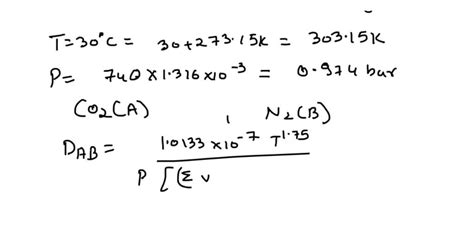 T=30°C = 30+273.15K = 303.15K
P= 740×1.316×10⁻³ = 0.974 bar
CO₂(A) , N₂(B)
D_AB = 1.0133×10⁻⁷ T^1.75
P [(Σ v